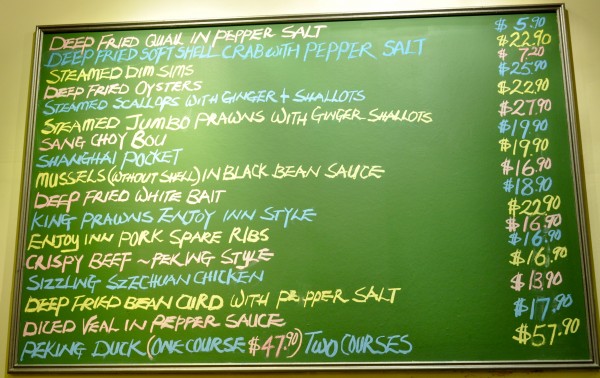 DEEP FRIED QUAIL IN PEPPER SALT $5.90
DEEP FRIED SOFT SHELL CRAB WITH PEPPER SALT $22.90
STEAMED DIM SIMS $7.20
DEEP FRIED OYSTERS $25.90
STEAMED SCALLOPS WITH GINGER + SHALLOTS $22.90
STEAMED JUMBO PRAWNS WITH GINGER SHALLOTS $27.90
SANG CHOY BOU $19.90
SHANGHAI POCKET $19.90
MUSSELS (WITHOUT SHELL) IN BLACK BEAN SAUCE $16.90
DEEP FRIED WHITE BAIT $18.90
KING PRAWNS ENJOY INN STYLE $22.90
ENJOY INN PORK SPARE RIBS $16.90
CRISPY BEEF ~ PEKING STYLE $16.90
SIZZLING SZECHUAN CHICKEN $16.90
DEEP FRIED BEAN CURD WITH PEPPER SALT $13.90
DICED VEAL IN PEPPER SAUCE $17.90
PEKING DUCK (ONE COURSE $47.90) TWO COURSES $57.90